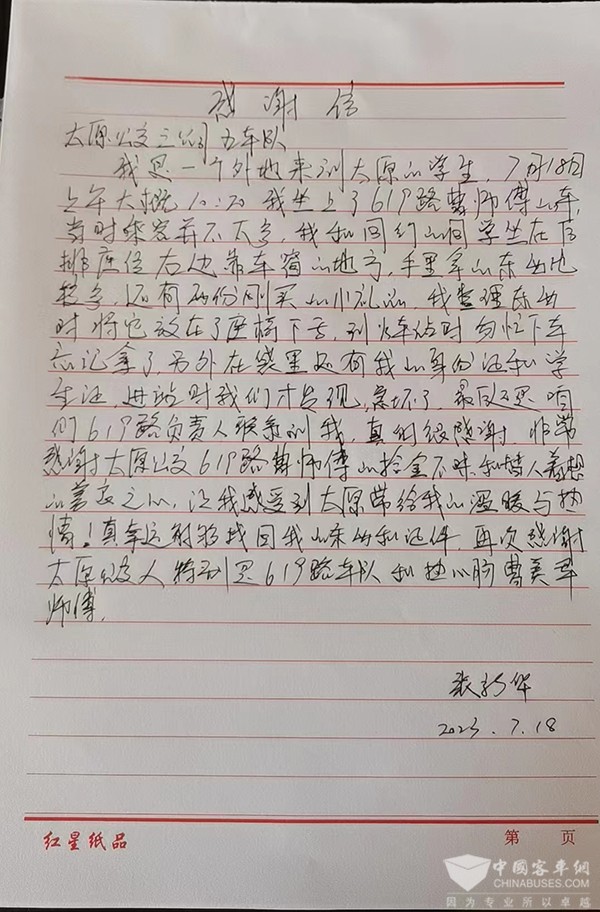 感谢信
太原公交三公司五车队
我是一个外地来到太原的学生，7月18日
上午大概10:20我坐上了619路曹师傅的车，
当时乘客并不太多，我和同行的同学坐在后
排座位右边靠车窗的地方，手里拿的东西比
较多，还有两份刚买的小礼品，我整理东西
时将它放在了座椅下面，到火车站时匆忙下车
忘记拿了，另外在袋里还有我的身份证和学
生证，进站时我们才发现，急坏了，最后还是咱
们619路负责人联系到我，真的很感谢，非常
感谢太原公交619路曹师傅的拾金不昧和替人着想
的善良之心，让我感受到太原带给我的温暖与热
情！真幸运能够找回我的东西和证件，再次感谢
太原公交人特别是619路车队和热心肠曹美
师傅，
张新华
2023.7.18
红星纸品
第 页
中國客车網
CHINABUSES.COM
因为专业所以卓越